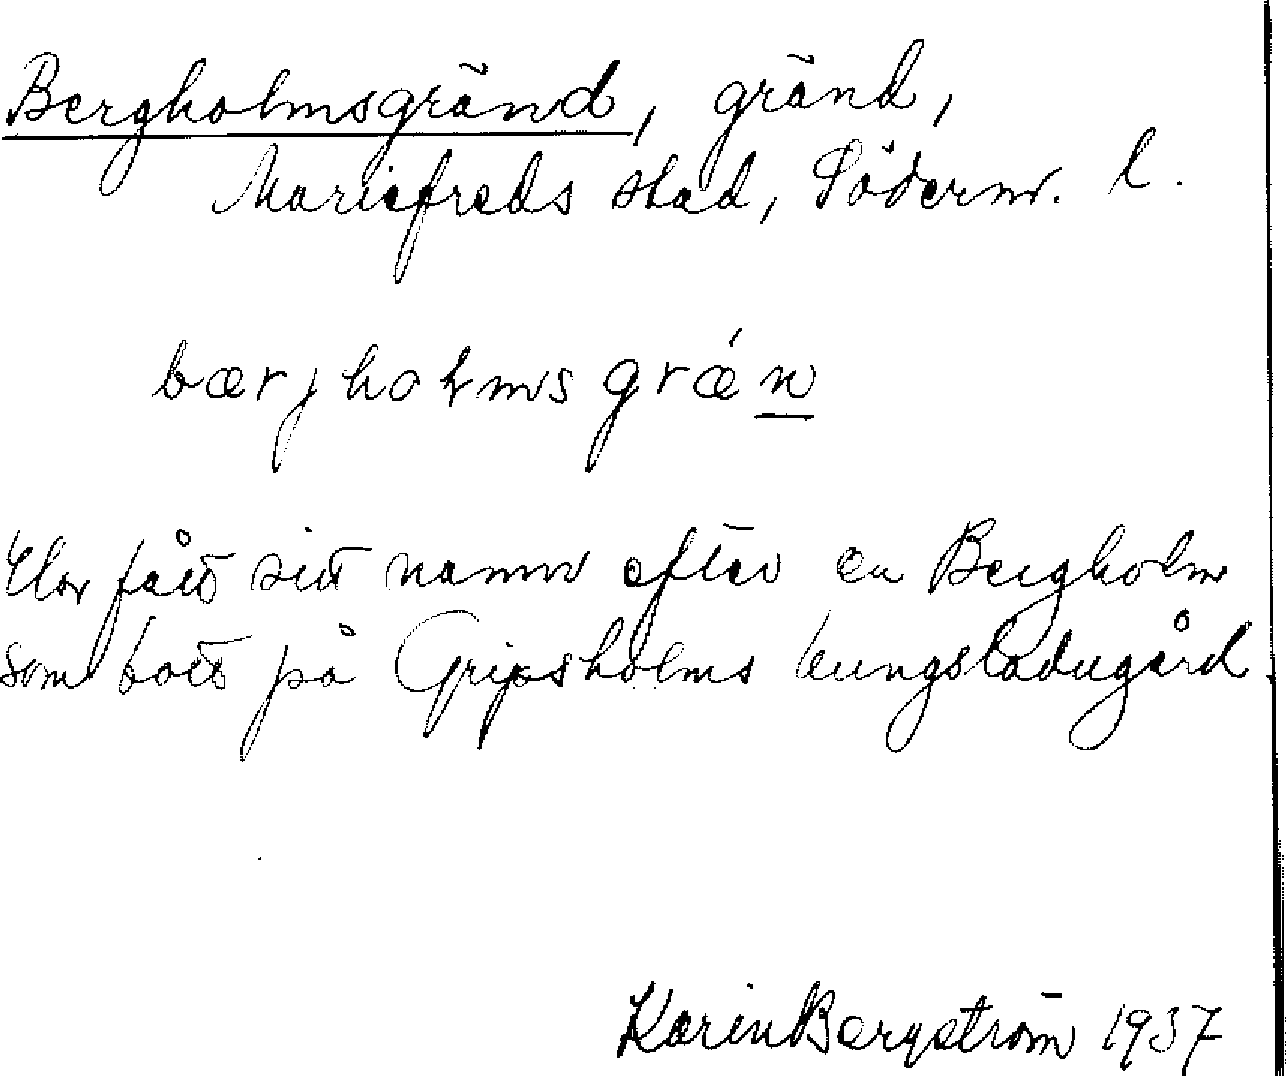 Bergholmsgränd, gränd,
Mariefreds stad, Söderm. l.
bærjholmsgrǽn
Har fått sitt namn efter en Bergholm
som bott på Gripsholms kungsladugård.
Karin Bergström 1937